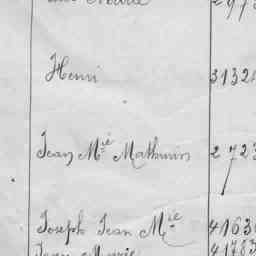 Henri 3132
Jean Mie Mathurin 2 723
Joseph Jean Mie 4163
Jean Marie 4178